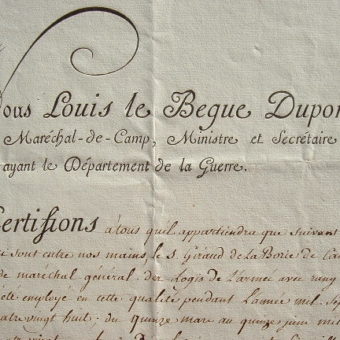 ous Louis le Begue Dupor
Maréchal-de-Camp, Ministre et Secrétaire
ayant le Département de la Guerre.
Certifions à tous quil appartiendra que suivant
sont entre nos mains le s. Giraud de la Borie de
de maréchal général des logis de L'armée avec rang
été employé en cette qualité pendant l'année mil Sep
atre vingt huit: du quinze mars au quinze juin